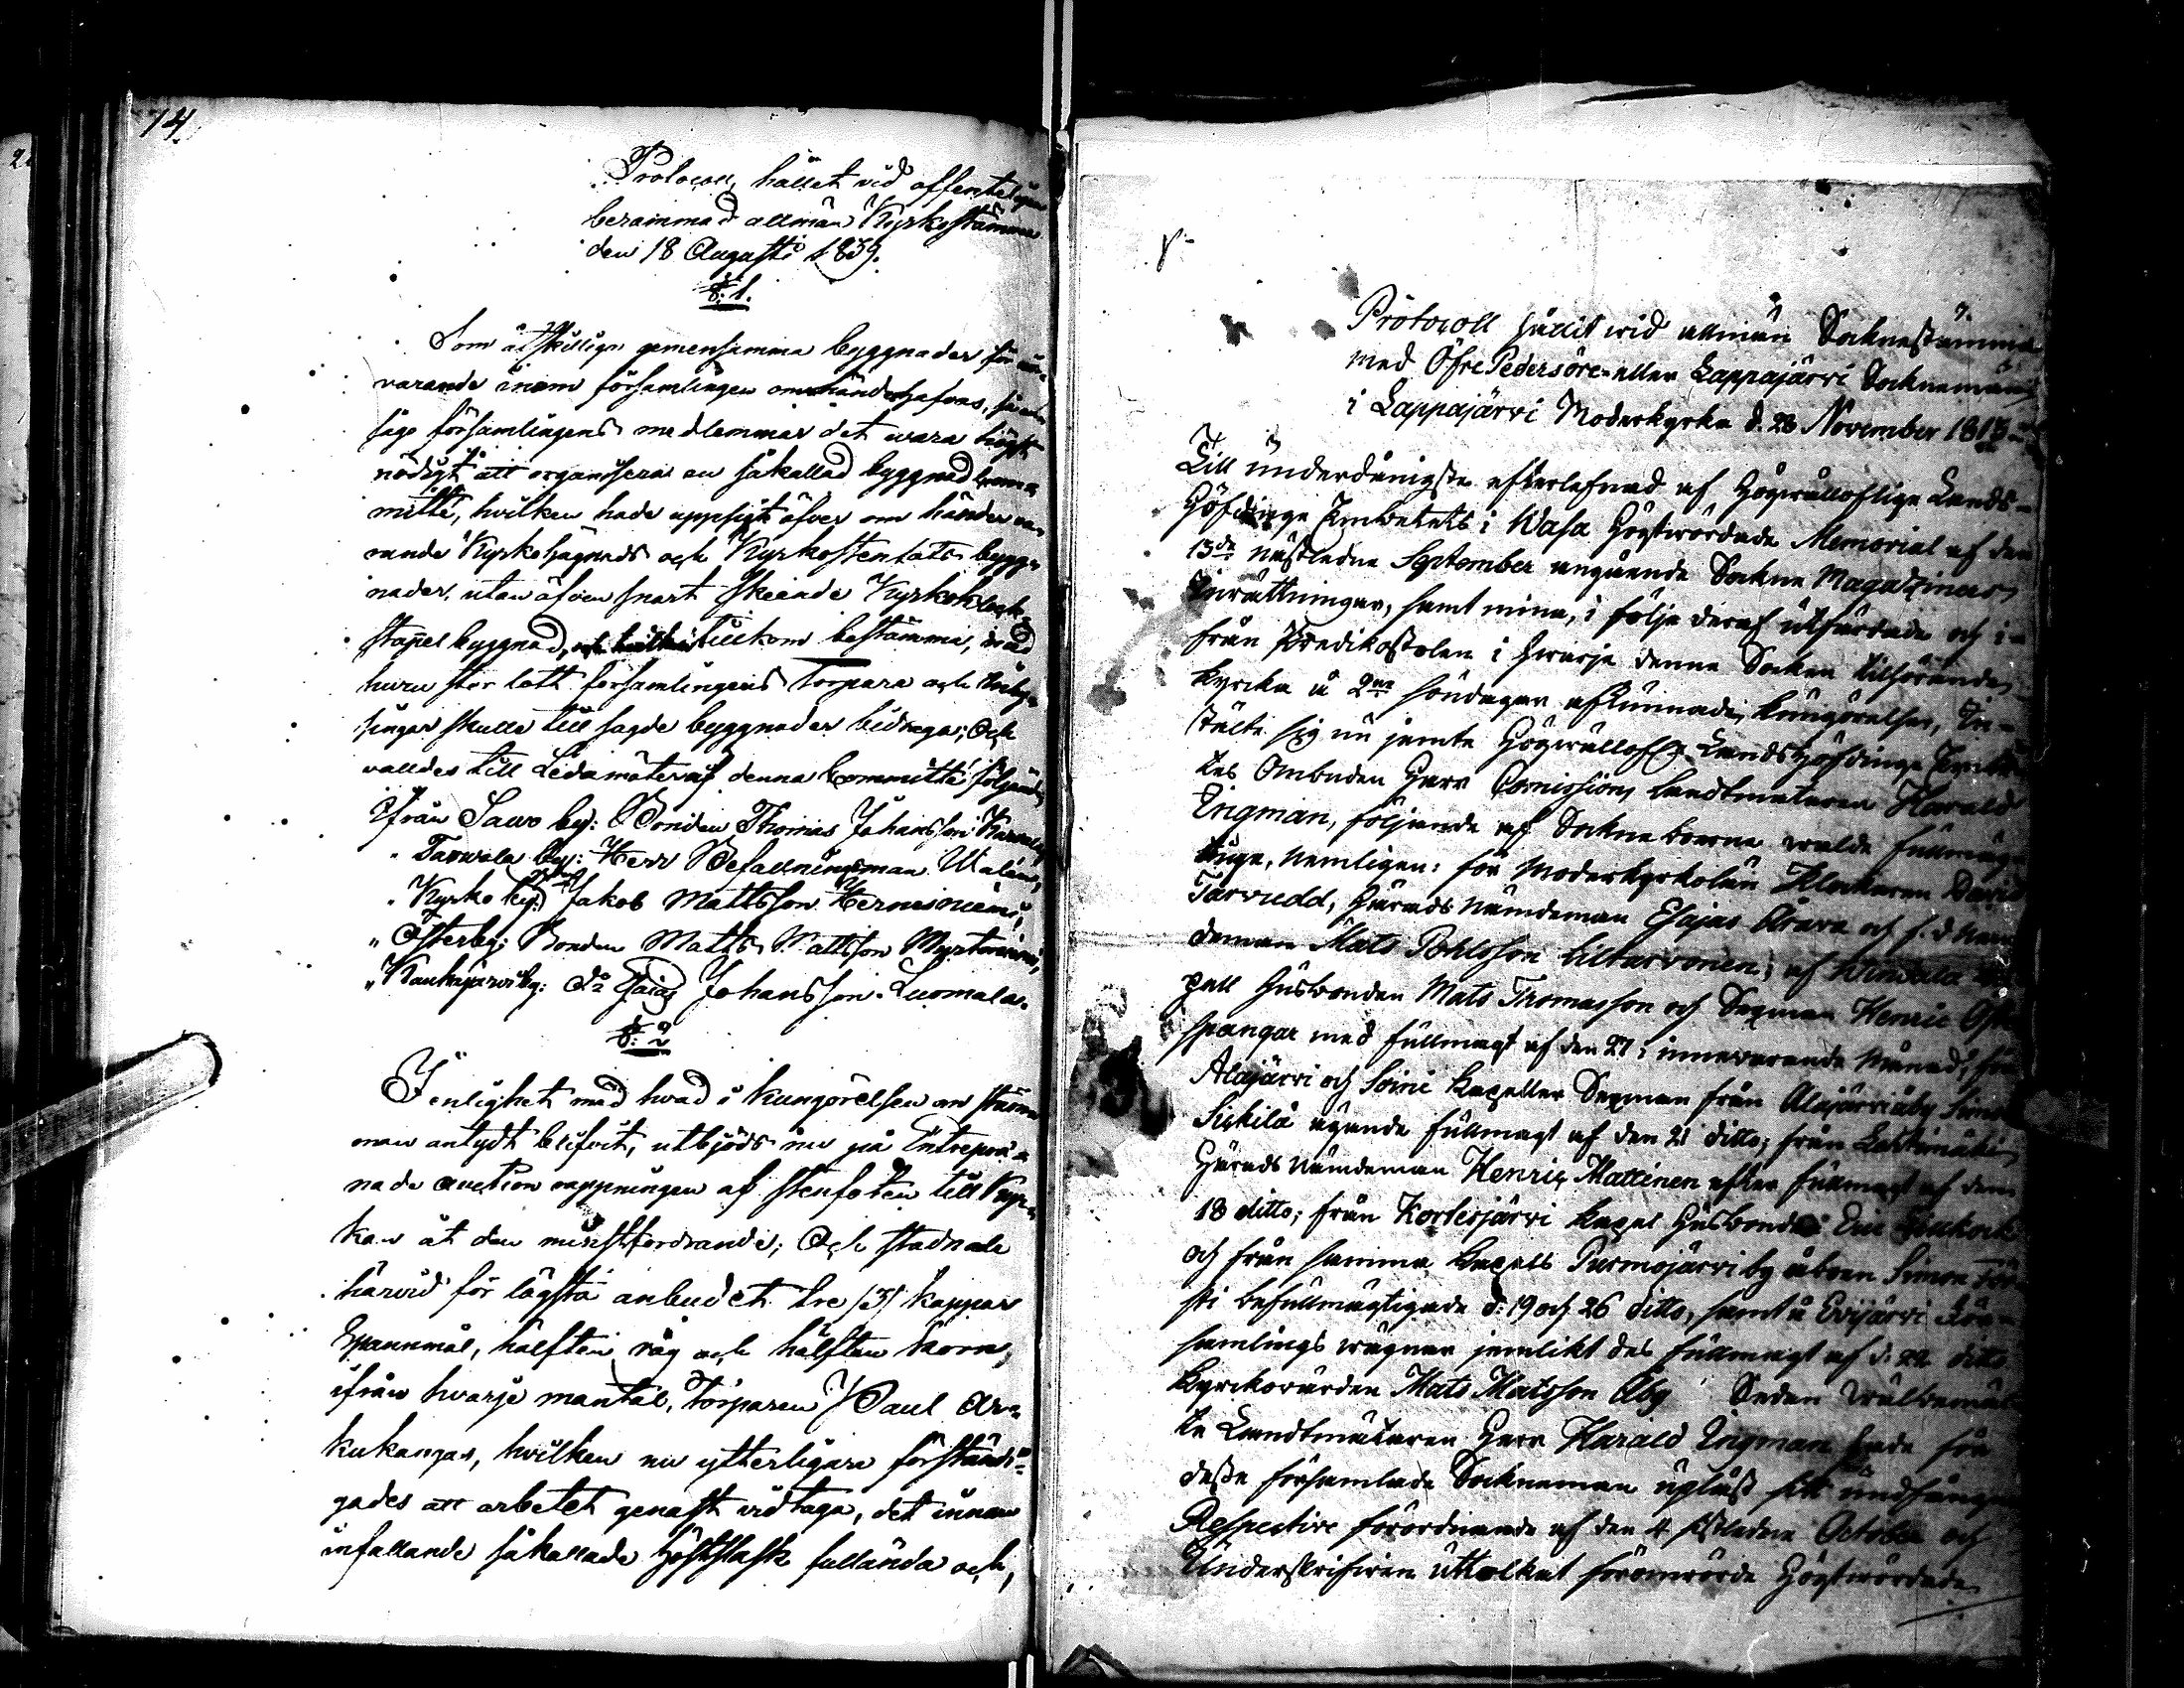 74.
Protocoll, hållet vid offenteligen
berammad allmän Kyrkostämma
den 18 Augusti 1839.
§. 1.
Som åtskilliga gemensamma byggnader för när-
varande inom församlingen omhänderhafvas, så an-
sågo församlingens medlemmar det wara högst
nödigt att organisera en såkallad byggnad komm-
mitté, hvilken hade uppsigt öfver om händer va-
rande Kyrkohägnads och Kyrkostentats bygg-
nader, utan äfven snart skeende Kyrkoklock
stapel byggnad, och tillkom bestämma, med
huru stor lott församlingens Torpare och Inhy-
singar skulle till sagde byggnader bidraga; Och
valldes till Ledamöter af denna Committé följande
Ifrån Sawo by: Bonden Thomas Johansson
" Tarwola by: Herr Befallningsman Walén,
" Kyrko by: Jakob Mattsson Hernesniemi,
" Österby: Bonden Matts Mattsson
" Kauhajärwi by: do Esaias Johansson Luomala.
§. 2
I enlighet med hvad i kungörelsen om stämn
man antydt blifvit, utbjöds nu på Entrepre-
nade auction rappningen af stenfoten till Kyr-
kan åt den minstfordrande; Och stadnade
härvid för lägsta anbudet tre /3/ kappar
Spannmål, hälften råg och hälften korn,
ifrån hvarje mantal, Torparen Paul Ar-
kukangas, hvilken nu ytterligare förständi-
gades att arbetet genast vidtaga, det innan
infallande såkallade höstslask fullända och,
7.
Protocoll hållit wid allmän Sockneståmma
med Öfre Pedersöre eller Lappajärvi Socknemän
i Lappajärvi Moderkyrka d. 28 November 1813
Till underdånigste efterlefnad af Högwälloflige Lands-
Höfdinge Embetets i Wasa Högtwördade Memorial af den
13de nästledne September angående Sockne Magaziners
Inrättningar, samt mine, i följe deraf utfärdade och i-
från Predikostolen i hwarje denne Socken tillhörande
Kyrcka å 2ne söndagar afkunnade, kungörelser, In-
stälte sig nu jemte Högwällofl. Landshöfdinge Embe
tes Ombuden Herr Comissions Landtmätaren Harald
Ingman, följande af Socknеboerne walde fullmäg
tige, Nemligen: för Moderkyrkolän Klockaren David
Tarvudd, Härads Nämdeman Esajas Årava och f. d. Näm
deman Mats Pohlsson Lillarvonen; af Windala Ca
pell Husbonden Mats Thomasson och Sexman Henric
spangar med fullmagt af den 27 i innevarande Månad; för
Alajärvi och Soini Kapeller Sexman från Alajärvi åby Simon
Sipkilä ägande fullmagt af den 21 ditto; från
Härads Nämdeman Henric Mattinen efter fullmagt af den
18 ditto; från Kortesjärvi Capel Husbonden Eric
och från samma Capells Purmojärvi by åboen Simon
sti befullmägtigade d: 19 och 26 ditto, samt å Evijärvi För-
samlings wägnar jemlikt des fullmagt af d: 22 ditto
Kyrckovärden Mats Matsson Åby Sedan Wälbemäl
te Landtmätaren Herr Harald Ingman hade för
desse församlade Sockneman upläst sitt undfångne
Respective förordnande af den 4 sistledne October och
Underskrifwen uttolkat förömrörde Högtwördade